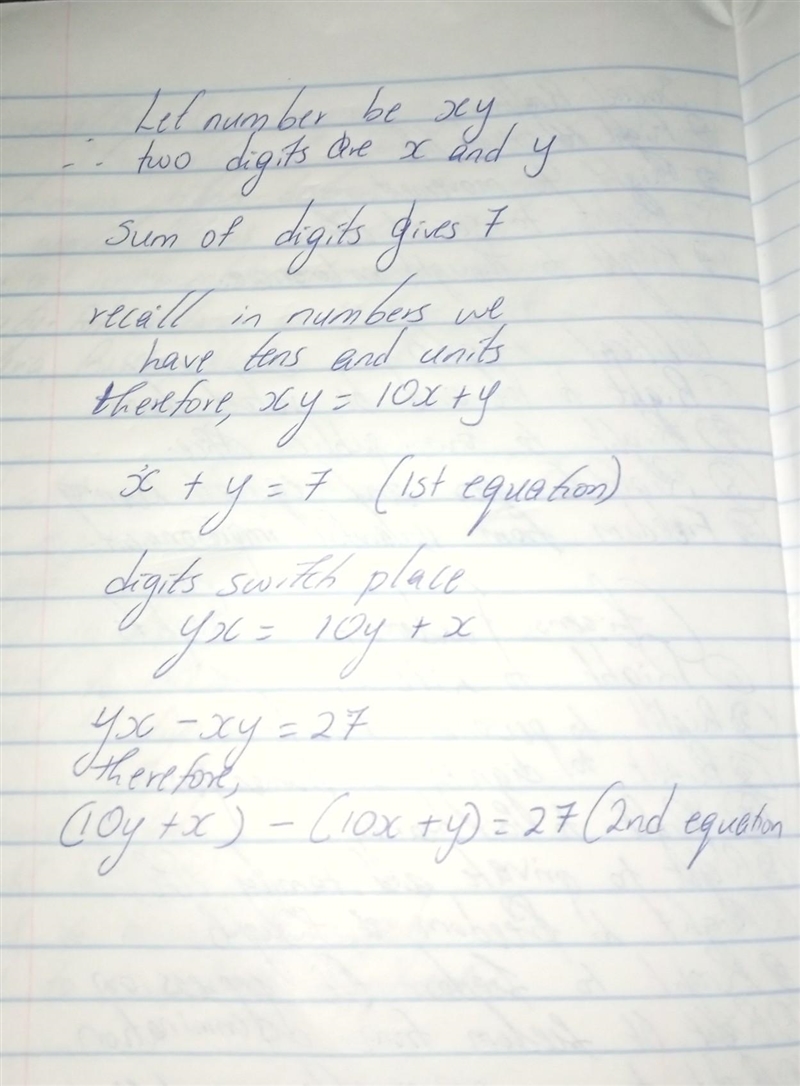 Let number be xy
∴ two digits are x and y
Sum of digits gives 7
recall in numbers we
have tens and units
therefore, xy = 10x + y
x + y = 7 (1st equation)
digits switch place
yx = 10y + x
yx - xy = 27
therefore,
(10y + x) - (10x + y) = 27 (2nd equation